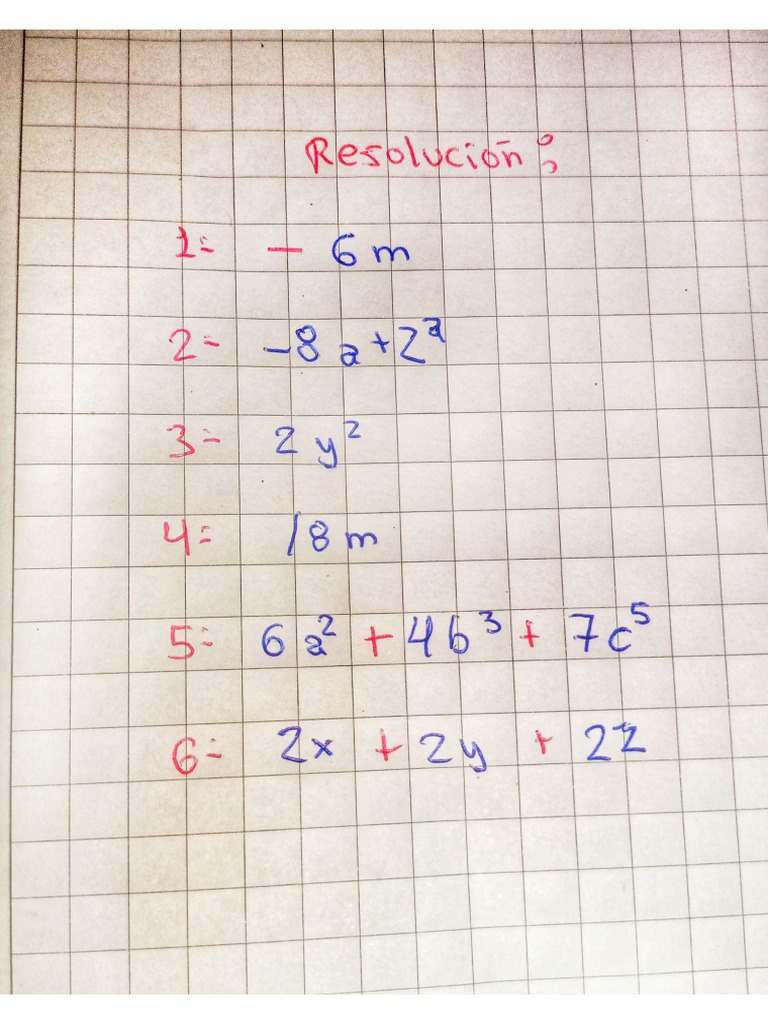 Resolución:
1= - 6m
2= -8a+2²
3= 2y²
4= 18m
5= 6a² + 4b³ + 7c⁵
6= 2x + 2y + 2z